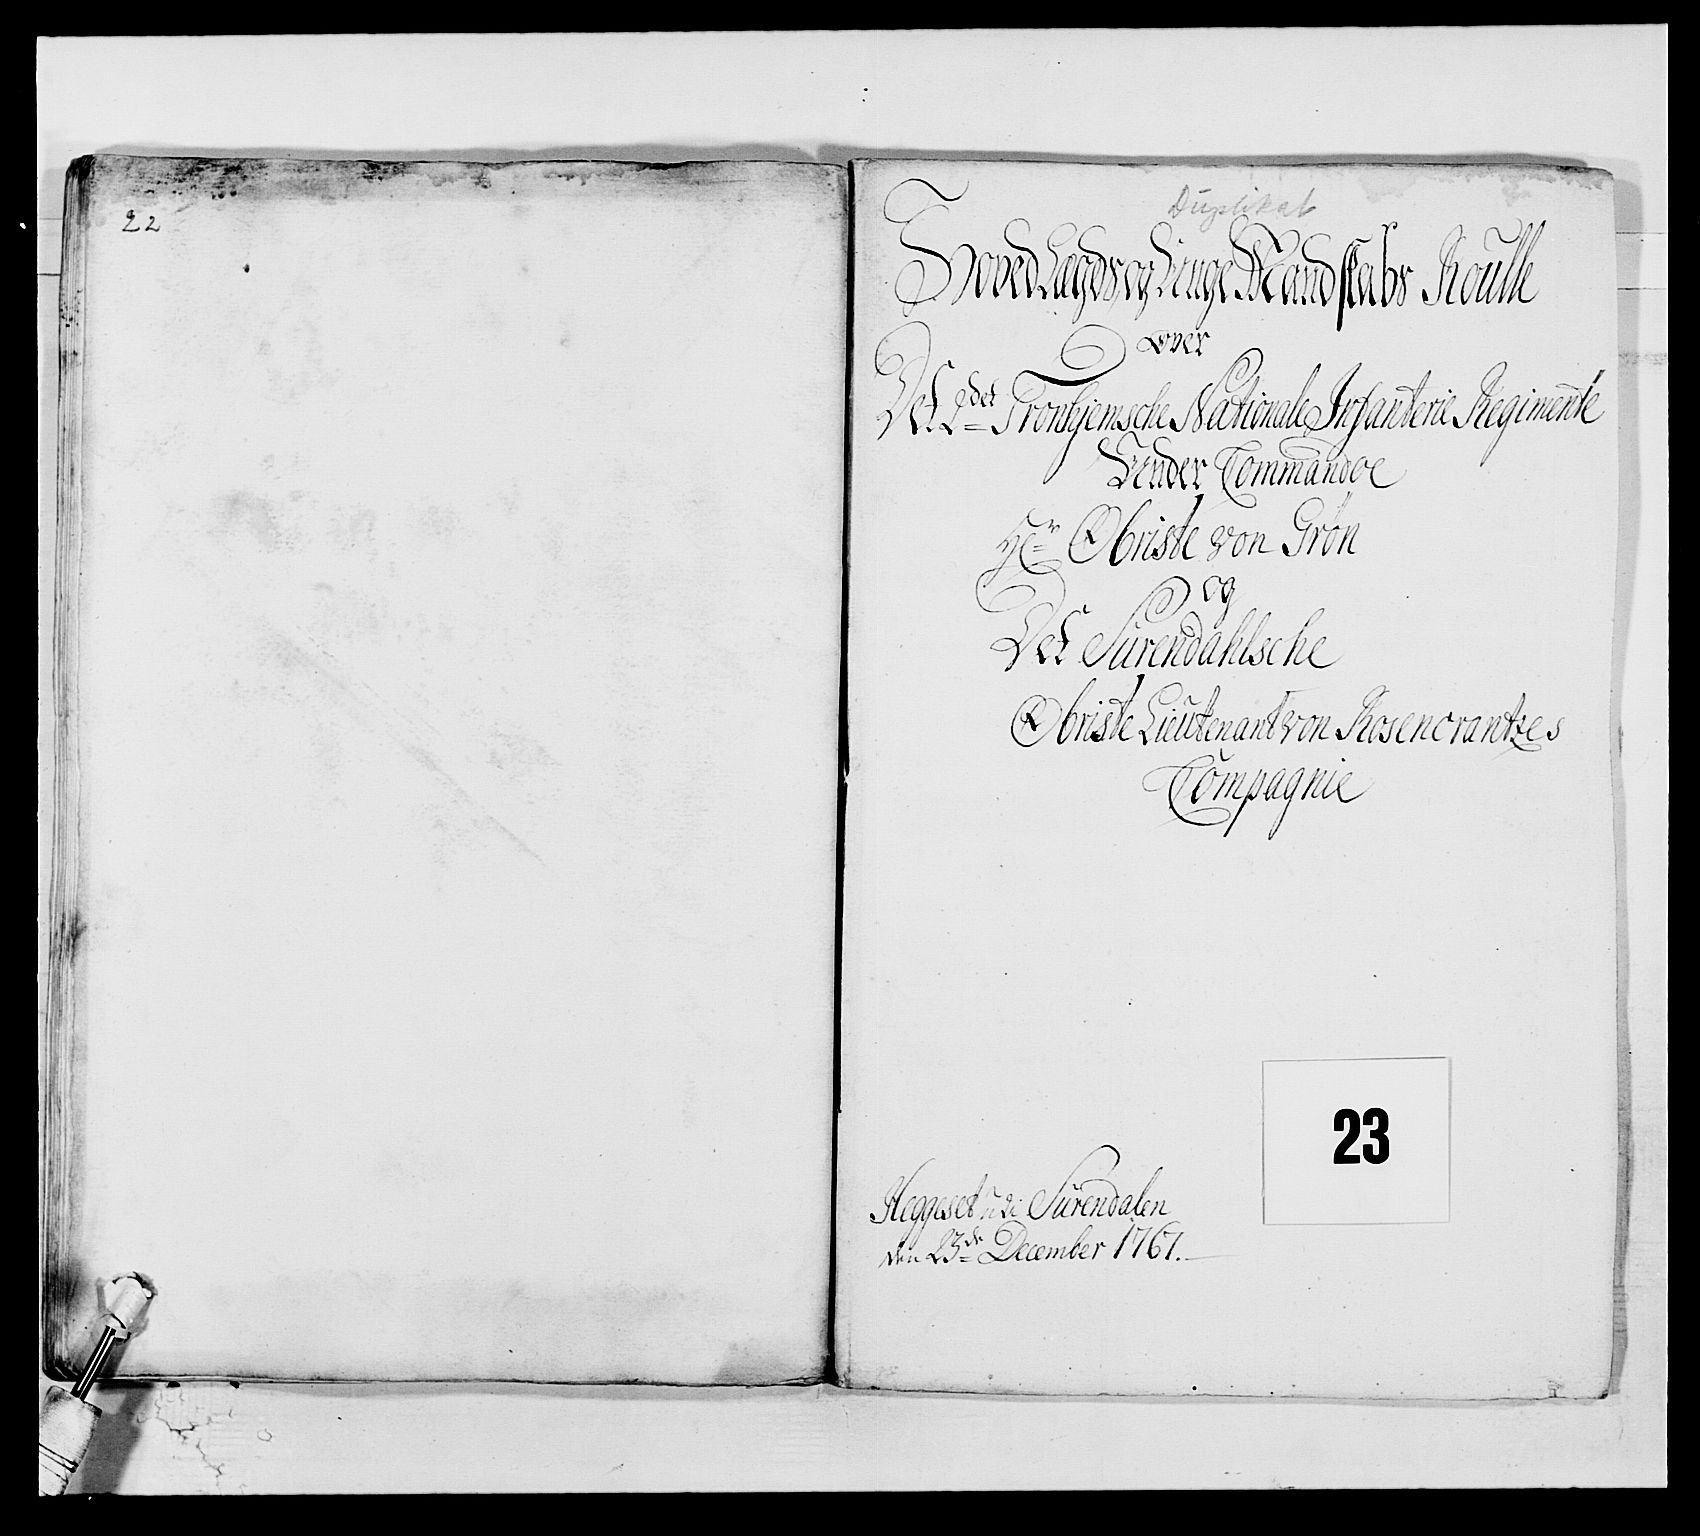 22
Duplikat
Hoved Lægds og Unge Mandskabs Roulle
over
Det 2det Tronhjemsche Nationale Infanterie Regimente
Under Commandoe
Hr Obriste von Grøn
og
Det Surendahlsche
Obriste Lieutenant von Rosencrantzes
Compagnie
23
Heggeset udi Surendalen
den 23de December 1767.